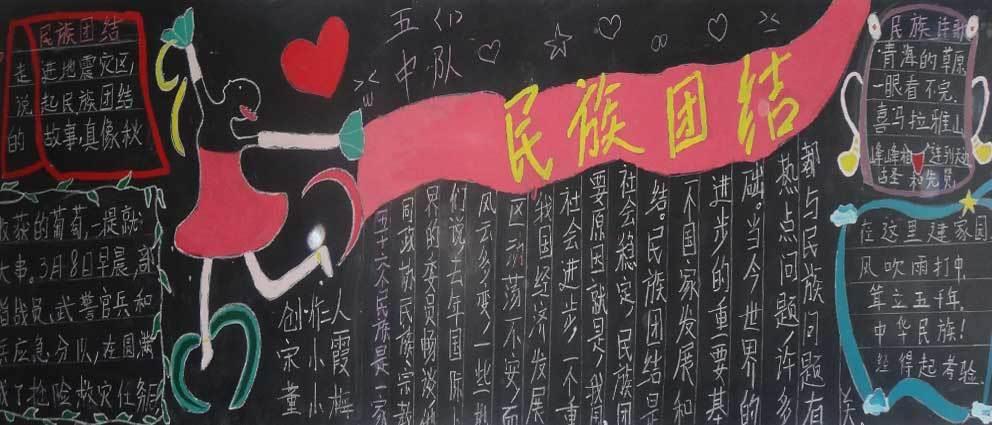 民族团结
走进地震灾区,
说起民族团结
的故事,真像秋
的葡萄,一提就
大事。3月8日早晨,
战员、武警官兵和
应急分队,在圆满
了抢险救灾任务
五〈1〉
中队
民族团结
创作人
宋小霞
董小梅
都与民族问题有关
热点问题,许多
础。当今世界的
进步的重要基
一个国家发展和
结。民族团结是
社会稳定、民族团
要原因,就是
社会进步一个重
找国经济发展
区动荡不安,而
风云多变,一些
们说,去年国际
界的委员畅谈
同政协民族宗教
五十六个民族是一家
民族诗歌
青海的草原
一眼看不完,
喜马拉雅山
峰峰相连到天边
古圣和先贤
在这里建家园
风吹雨打中
耸立五千年。
中华民族!
经得起考验